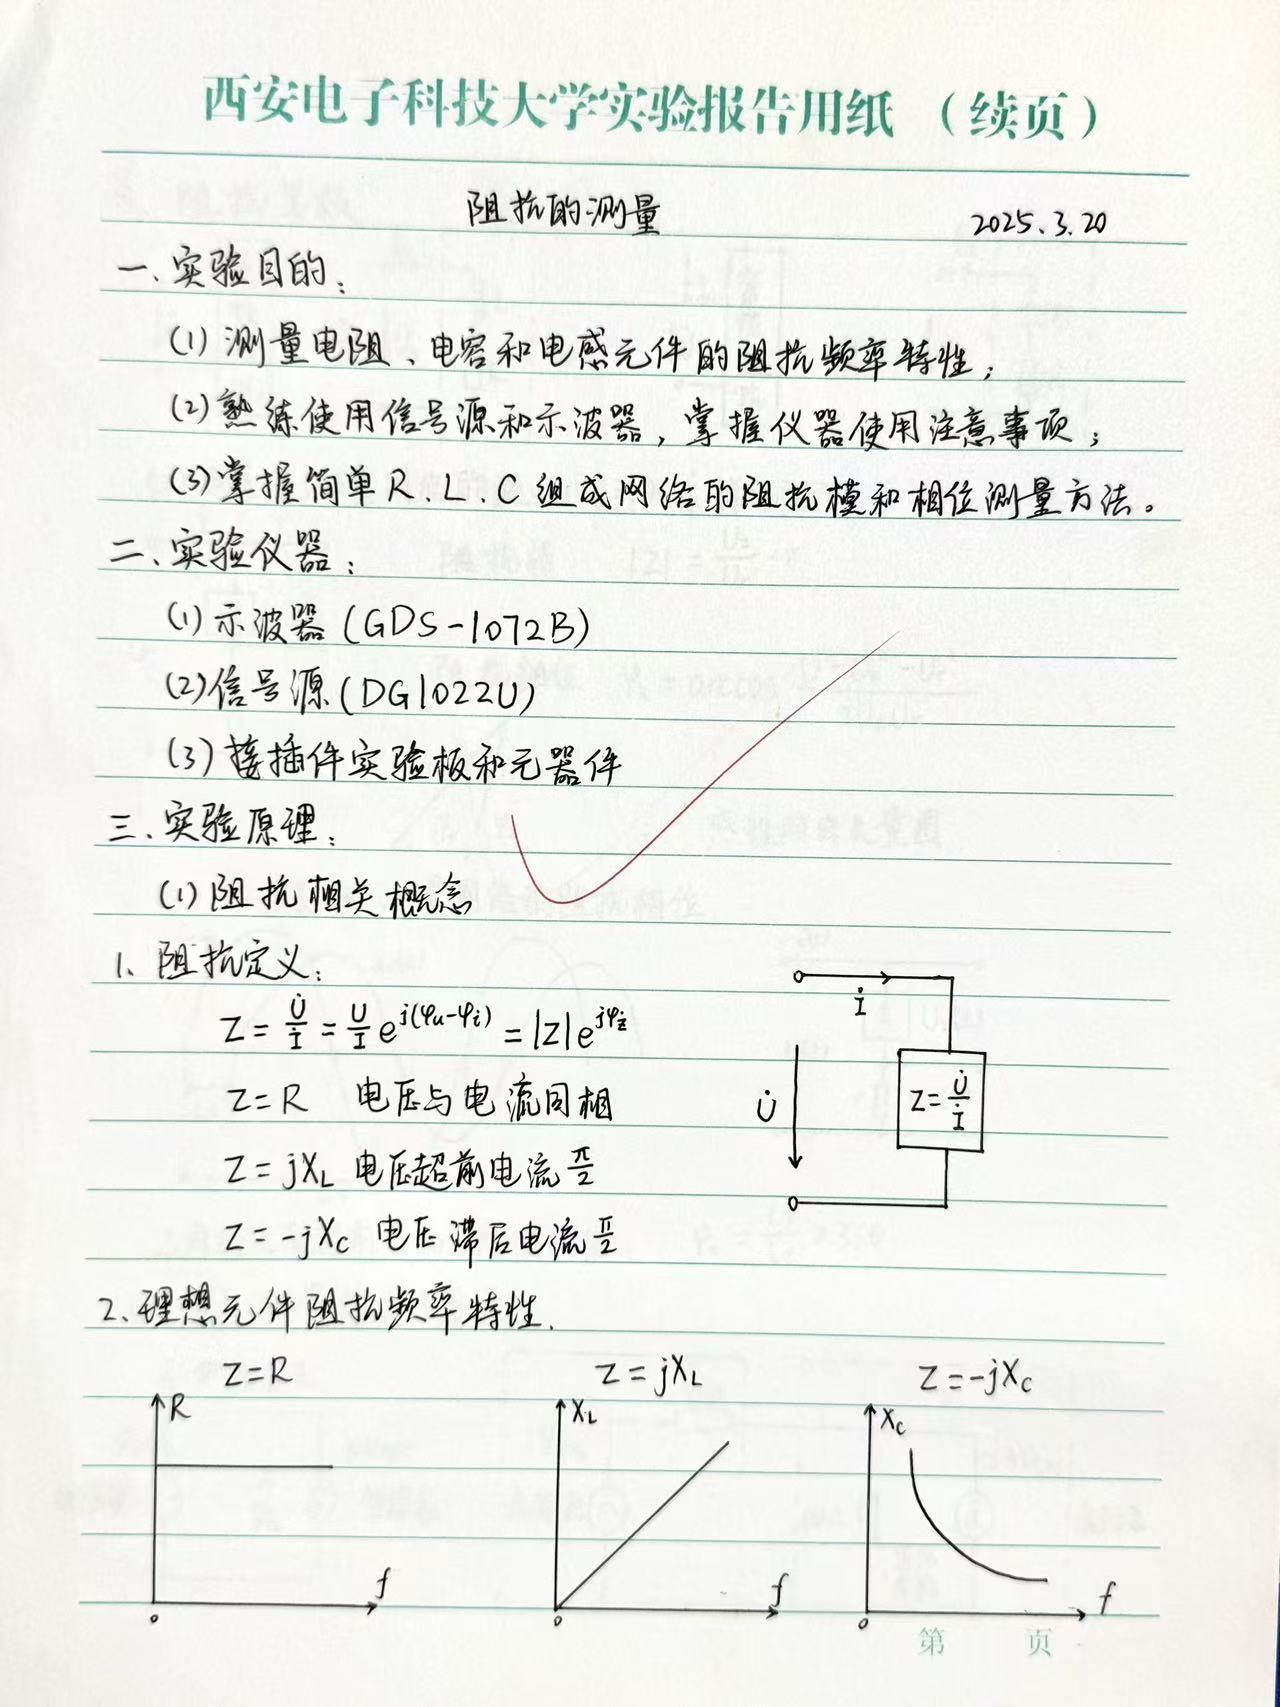 西安电子科技大学实验报告用纸 (续页)
阻抗的测量 2025.3.20
一、实验目的:
(1) 测量电阻、电容和电感元件的阻抗频率特性;
(2) 熟练使用信号源和示波器,掌握仪器使用注意事项;
(3) 掌握简单R、L、C组成网络的阻抗模和相位测量方法。
二、实验仪器:
(1) 示波器 (GDS-1072B)
(2) 信号源 (DG1022U)
(3) 接插件实验板和元器件
三、实验原理:
(1) 阻抗相关概念
1、阻抗定义:
Z = U̇/İ = U/I e^{j(φu-φi)} = |Z|e^{jφz}
Z=R 电压与电流同相
Z=jX_L 电压超前电流 π/2
Z=-jX_C 电压滞后电流 π/2
İ
U̇
Z=U̇/İ
2、理想元件阻抗频率特性.
Z=R Z=jX_L Z=-jX_C
R X_L X_C
f f f
0 0 0
第 页